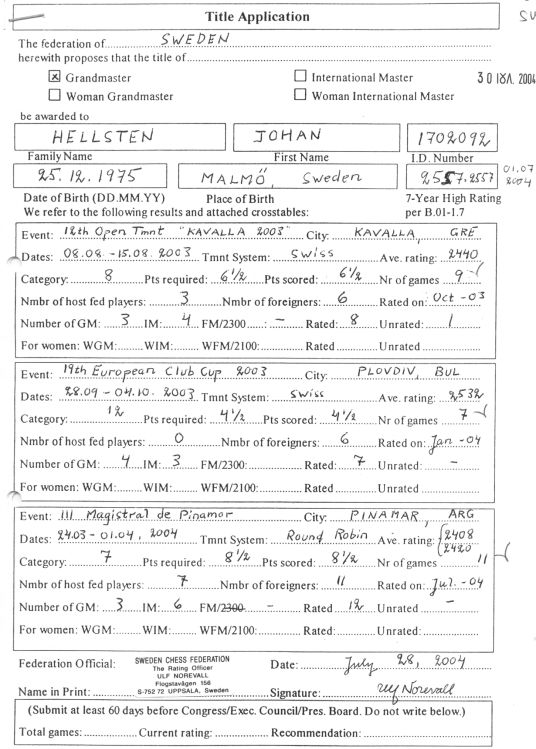 Title Application
SU
The federation of SWEDEN
herewith proposes that the title of
☒ Grandmaster ☐ International Master 30 ΙΟΥΛ. 2004
☐ Woman Grandmaster ☐ Woman International Master
be awarded to
HELLSTEN JOHAN 1702092
Family Name First Name I.D. Number
25.12.1975 MALMÖ, Sweden 2557.2557 01.07 2004
Date of Birth (DD.MM.YY) Place of Birth 7-Year High Rating
We refer to the following results and attached crosstables: per B.01-1.7
Event: 12th Open Tmnt "KAVALLA 2003" City: KAVALLA, GRE
Dates: 08.08 - 15.08 2003 Tmnt System: Swiss Ave. rating: 2440
Category: 8 Pts required: 6 1/2 Pts scored: 6 1/2 Nr of games 9
Nmbr of host fed players: 3 Nmbr of foreigners: 6 Rated on: Oct -03
Number of GM: 3 IM: 4 FM/2300 : - Rated: 8 Unrated: 1
For women: WGM: WIM: WFM/2100: Rated: Unrated:
Event: 19th European Club Cup 2003 City: PLOVDIV, BUL
Dates: 28.09 - 04.10. 2003 Tmnt System: Swiss Ave. rating: 2532
Category: 12 Pts required: 4 1/2 Pts scored: 4 1/2 Nr of games 7
Nmbr of host fed players: 0 Nmbr of foreigners: 6 Rated on: Jan -04
Number of GM: 4 IM: 3 FM/2300: Rated: 7 Unrated: -
For women: WGM: WIM: WFM/2100: Rated Unrated
Event: III Magistral de Pinamar City: PINAMAR, ARG
Dates: 24.03 - 01.04, 2004 Tmnt System: Round Robin Ave. rating: 2408
2420
Category: 7 Pts required: 8 1/2 Pts scored: 8 1/2 Nr of games 11
Nmbr of host fed players: 7 Nmbr of foreigners: 11 Rated on: Jul. -04
Number of GM: 3 IM: 6 FM/2300 - Rated 12 Unrated -
For women: WGM: WIM: WFM/2100: Rated: Unrated:
Federation Official: Date: July 28, 2004
SWEDEN CHESS FEDERATION
The Rating Officer
ULF NOREVALL
Flogstavägen 156
S-752 72 UPPSALA, Sweden
Name in Print: Signature: Ulf Norevall
(Submit at least 60 days before Congress/Exec. Council/Pres. Board. Do not write below.)
Total games: Current rating: Recommendation: